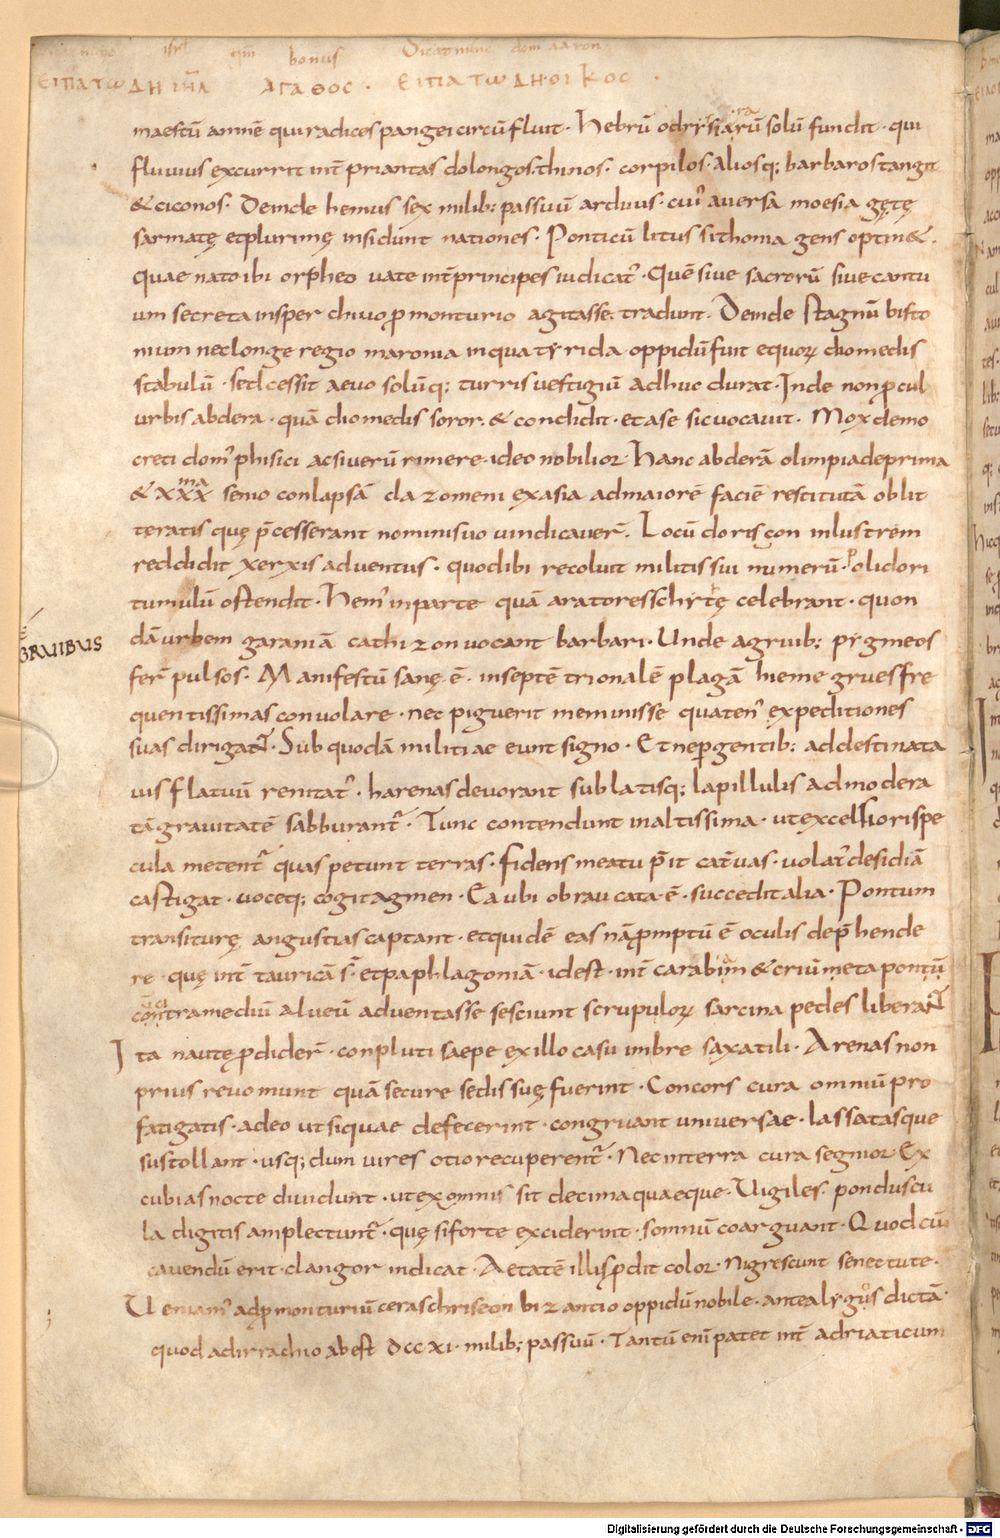 isrl qm bonus Dicat nunc dom aaron
ΕΙΠΑΤΩΔΗ ΙΗΛ ΑΓΑΘΟϹ · ΕΙΠΑΤΩΔΗ·ΟΙΚΟϹ ·
maestū amnē qui radices pangei circūfluit · Hebrū odrysiarū solū fundit · qui
fluuius excurrit int̄ priantas dolongos · thinos · corpilos · aliosq; barbaros tangit
& ciconos · Deinde hemus sex milib; passuū arduus · cui᾽ auersa moesia gętę
sarmatę et plurimę insidunt nationes · Ponticū litus sithonia gens optin& ·
quae nato ibi orpheo uate int̄ principes iudicat᾽ · Quē siue sacrorū siue cantu
um secreta insper chiuo ꝓmonturio agitasse · tradunt · Deinde stagnū bisto
nium nec longe regio maronia in qua tyrida oppidū fuit equoꝝ diomedis
stabulū · sed cessit aeuo solūq; turris uestigiū adhuc durat · Inde non ꝓcul
urbis abdera · quā diomedis soror · & condidit · et a se sic uocauit · Mox demo
creti dom᾽ phisici ac si uerū rimere · ideo nobilior · Hanc abderā olimpiade prima
& xxx ma senio conlapsā clazomeni ex asia ad maiorē faciē restitutā oblit
teratis quę p̄cesserant nomini suo uindicauer̄ · Locū doriscon inlustrem
reddidit xerxis aduentus · quod ibi recoluit militis sui numerū · Polidori
tumulū ostendit · Hem᾽ in parte quā aratores schytę celebrant · quon
dā urbem garaniā cathizon uocant barbari · Unde a gruib; pygmeos
GRUIBUS
fer̄ pulsos · Manifestū sanę ē · in septētrionalē plagā hieme grues fre
quentissimas conuolare · nec piguerit meminisse quaten᾽ expeditiones
suas dirigant · Sub quodā militiae eunt signo · Et ne ꝑgentib; ad destinata
uis flatuū renitat᾽ · harenas deuorant sublatisq; lapillulis ad modera
tā grauitatē sabburant᾽ · Tunc contendunt in altissima · ut excelsioris spe
cula metent᾽ quas petunt terras · Fidens meatu p̄it cat᾽uas · uolat᾽ desidiā
castigat · uoceq; cogit agmen · Ea ubi obraucata ē · succedit alia · Pontum
transiturę angustias captant · et quidē eas nā ꝓmptū ē oculis dep̄hende
re · quę int̄ tauricā s̄ et paphlagoniā · id est · int̄ carabim & criū metapontū
contra mediū alueū aduentasse se sciunt scrupuloꝝ sarcina pedes liberant
Ita nautę ꝓdider̄ · conpluti saepe ex illo casu imbre saxatili · Arenas non
prius reuomunt quā secure sedis suę fuerint · Concors cura omniū pro
fatigatis · adeo ut si quae defecerint · congruant uniuersae · lassatasque
sustollant · usq; dum uires otio recuperent᾽ · Nec in terra cura segnior Ex
cubias nocte diuidunt · ut ex omnis sit decima quaeque · Uigiles · ponduscu
la digitis amplectunt᾽ · quę si forte exciderint · somnū coarguant · Quod cū
cauendū erit · clangor indicat · Aetatē illis ꝓdit color · nigrescunt senectute ·
Ueniam᾽ ad ꝓmonturiū ceras chriseon bizantio oppidū nobile · antea lygos dictā ·
quod a dirrachio abest dccxi · milib; passuū · Tantū eni patet int̄ adriaticum
Digitalisierung gefördert durch die Deutsche Forschungsgemeinschaft - DFG